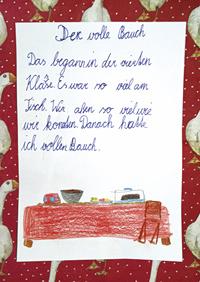 Der volle Bauch
Das begann in der vierten
Klaße. Es war so val am
Tisch. Wir aßen so viel wie
wir konnten. Danach hatte
ich vollen Bauch.